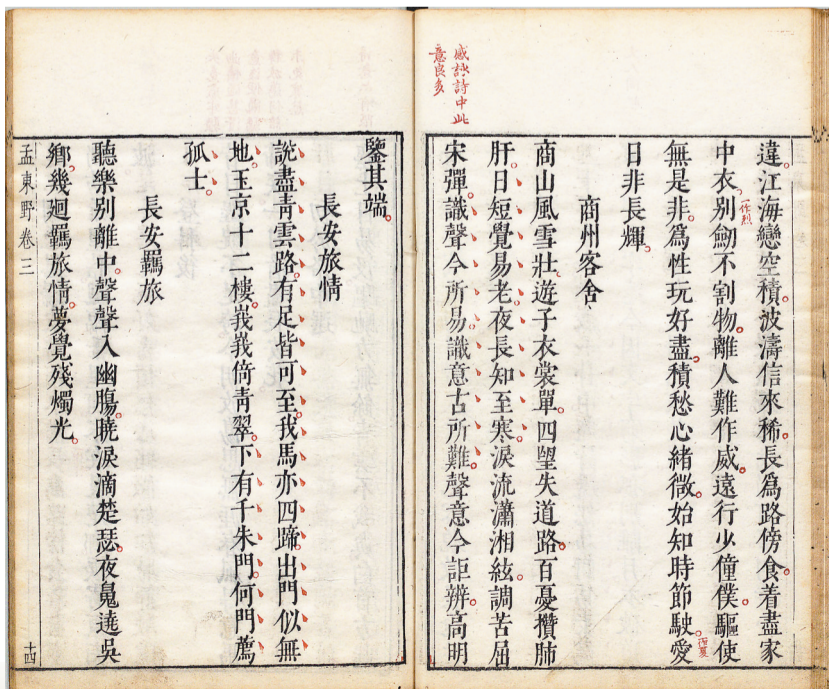 感訣詩中此
意良多
違江海戀空積波濤信來稀長爲路傍食着盡家
中衣別劒不割物離人難作威遠行少僮僕驅使
一作烈
無是非爲性玩好盡積愁心緒微始知時節駛愛
日非長輝
商州客舍
商山風雪壯遊子衣裳單四望失道路百憂攢肺
肝日短覺易老夜長知至寒淚流瀟湘絃調苦屈
宋彈識聲今所易識意古所難聲意今詎辨高明
鑒其端
長安旅情
說盡青雲路有足皆可至我馬亦四蹄出門似無
地玉京十二樓峩峩倚青翠下有千朱門何門薦
孤士
長安羈旅
聽樂別離中聲聲入幽腸曉淚滴楚瑟夜魄遶吳
鄉幾迴羈旅情夢覺殘燭光
孟東野卷三
十四